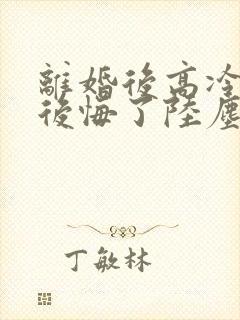 離婚後高冷
後悔了陸塵
丁敏林